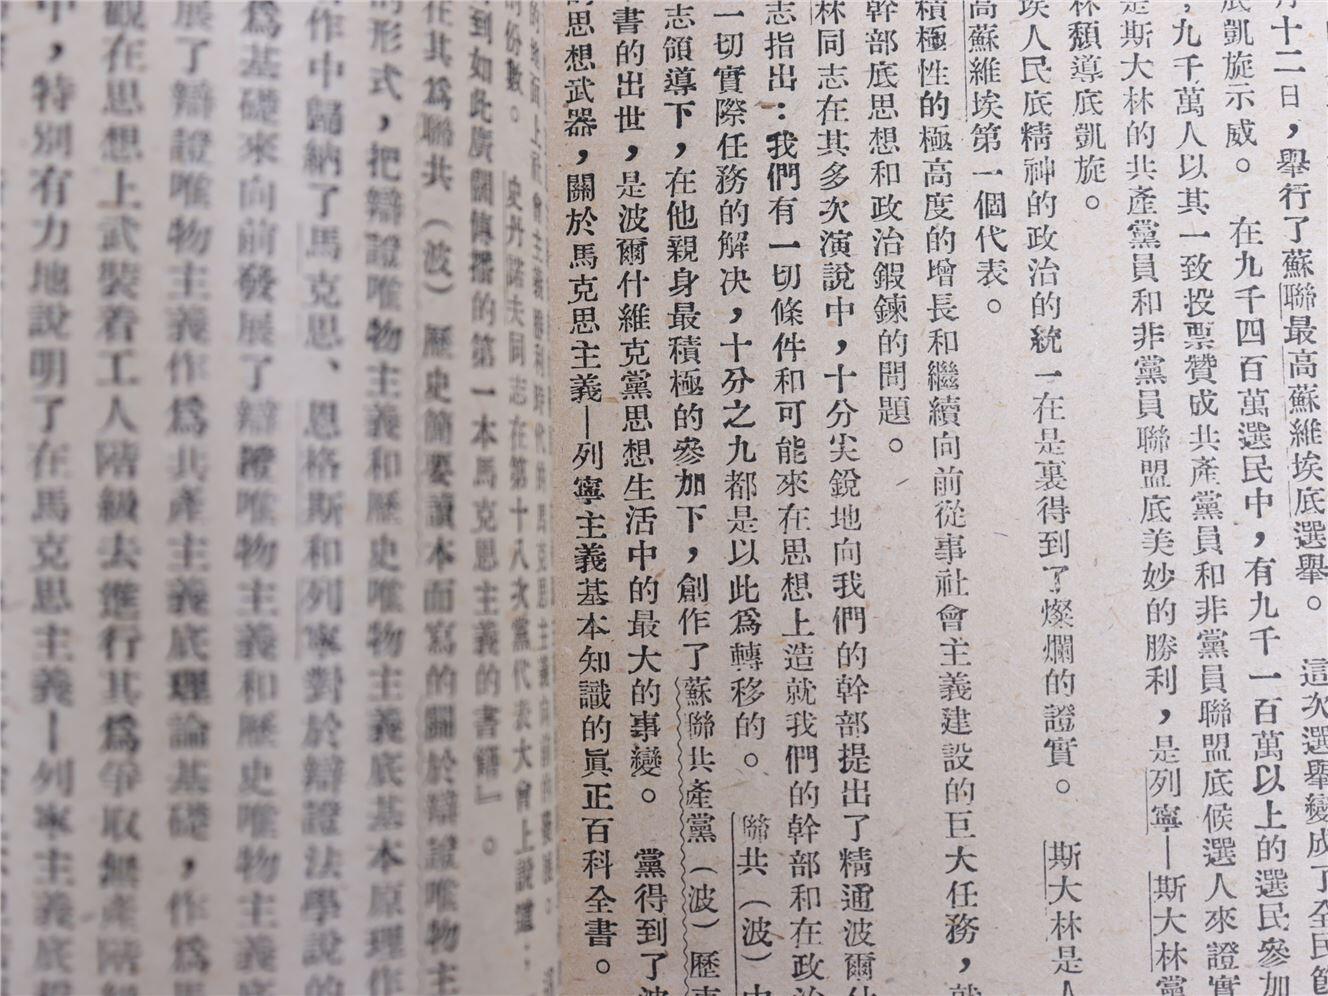 月十二日，舉行了蘇聯最高蘇維埃底選舉。　這次選舉變成了全民節
底凱旋示威。　在九千四百萬選民中，有九千一百萬以上的選民參加
，九千萬人以其一致投票贊成共產黨員和非黨員聯盟底候選人來證實
是斯大林的共產黨員和非黨員聯盟底美妙的勝利，是列寧—斯大林黨
林領導底凱旋。
埃人民底精神的政治的統一在是裏得到了燦爛的證實。　斯大林是人
高蘇維埃第一個代表。
積極性的極高度的增長和繼續向前從事社會主義建設的巨大任務，就
幹部底思想和政治鍛鍊的問題。
林同志在其多次演說中，十分尖銳地向我們的幹部提出了精通波爾什
志指出：我們有一切條件和可能來在思想上造就我們的幹部和在政治
一切實際任務的解决，十分之九都是以此爲轉移的。　聯共（波）中
志領導下，在他親身最積極的參加下，創作了蘇聯共產黨（波）歷史
書的出世，是波爾什維克黨思想生活中的最大的事變。　黨得到了波
的思想武器，關於馬克思主義—列寧主義基本知識的眞正百科全書。
的份數。　史丹諾夫同志在第十八次黨代表大會上說道：
到如此廣闊傳播的第一本馬克思主義的書籍』。
在其爲聯共（波）歷史簡要讀本而寫的關於辯證唯物主
的形式，把辯證唯物主義和歷史唯物主義底基本原理作
作中歸納了馬克思、恩格斯和列寧對於辯證法學說的
爲基礎來向前發展了辯證唯物主義和歷史唯物主義底
展了辯證唯物主義作爲共產主義底理論基礎，作爲馬
觀在思想上武裝着工人階級去進行其爲爭取無產階級
中，特別有力地說明了在馬克思主義—列寧主義底